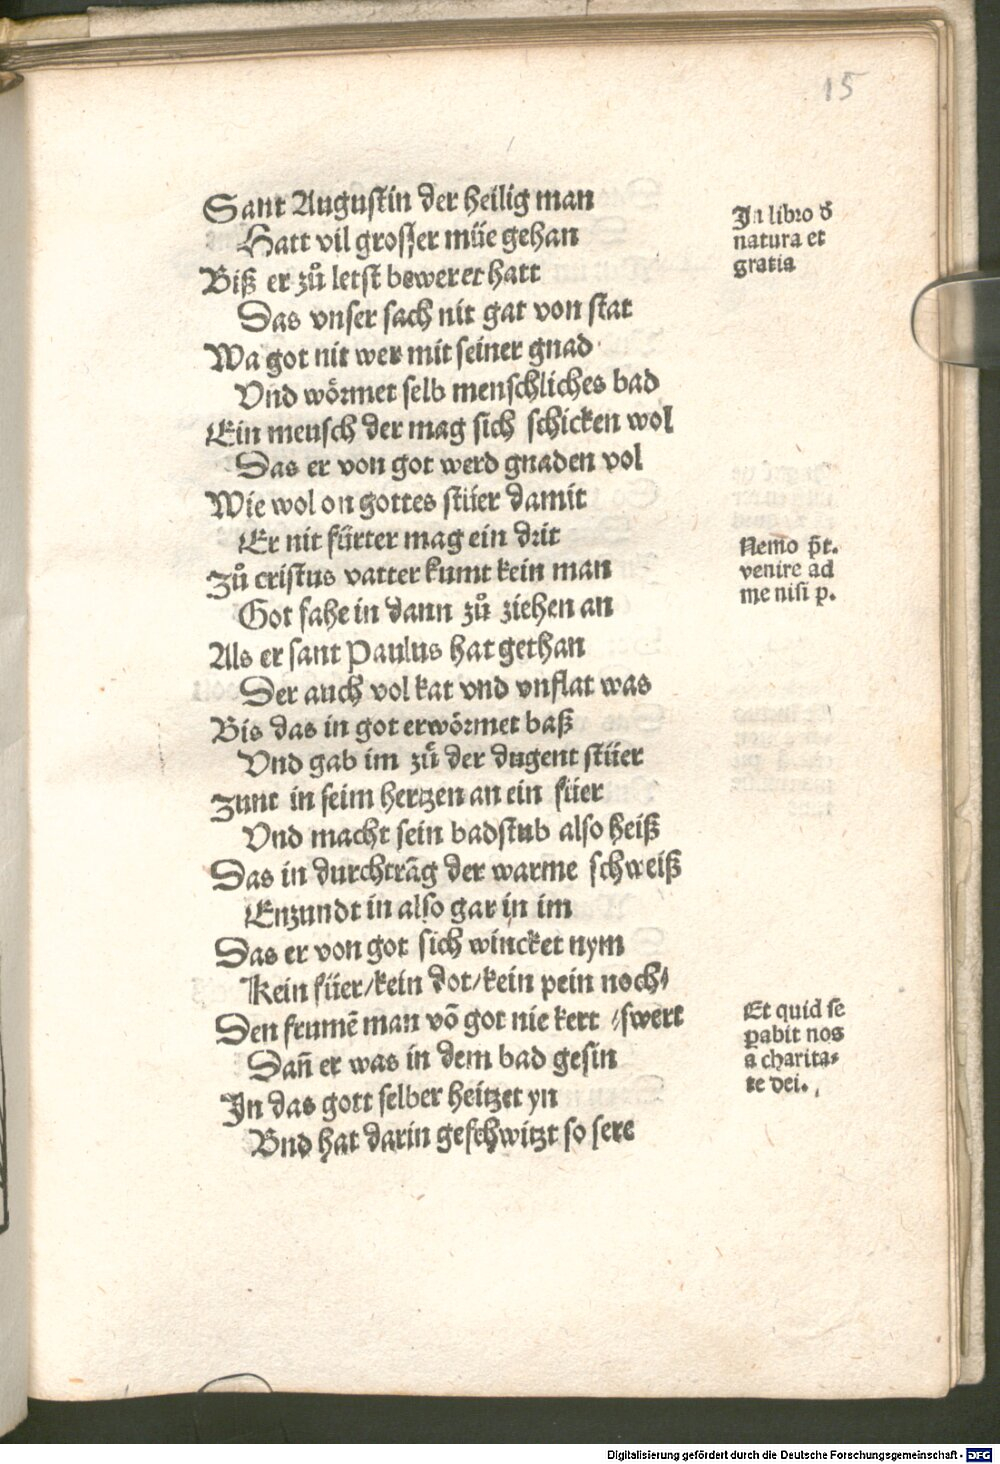 15
Sant Augustin der heilig man
Hatt vil grosser müe gehan
Biß er zů letst beweret hatt
Das vnser sach nit gat von stat
Wa got nit wer mit seiner gnad
Vnd wörmet selb menschliches bad
Ein mensch der mag sich schicken wol
Das er von got werd gnaden vol
Wie wol on gottes stüer damit
Er nit fürter mag ein drit
Zů cristus vatter kumt kein man
Got fahe in dann zů ziehen an
Als er sant Paulus hat gethan
Der auch vol kat vnd vnflat was
Bis das in got erwörmet baß
Vnd gab im zů der dugent stüer
Zunt in seim hertzen an ein füer
Vnd macht sein badstub also heiß
Das in durchtrãg der warme schweiß
Enzundt in also gar in im
Das er von got sich wincket nym
Kein füer/kein dot/kein pein noch⸗
Den frumẽ man võ got nie kert ⸗swert
Dañ er was in dem bad gesin
In das gott selber heitzet yn
Vnd hat darin geschwitzt so sere
In libro d̕
natura et
gratia
Nemo p̄t.
venire ad
me nisi p.
Et quid se
ꝑabit nos
a charita⸗
te dei.
Digitalisierung gefördert durch die Deutsche Forschungsgemeinschaft - DFG